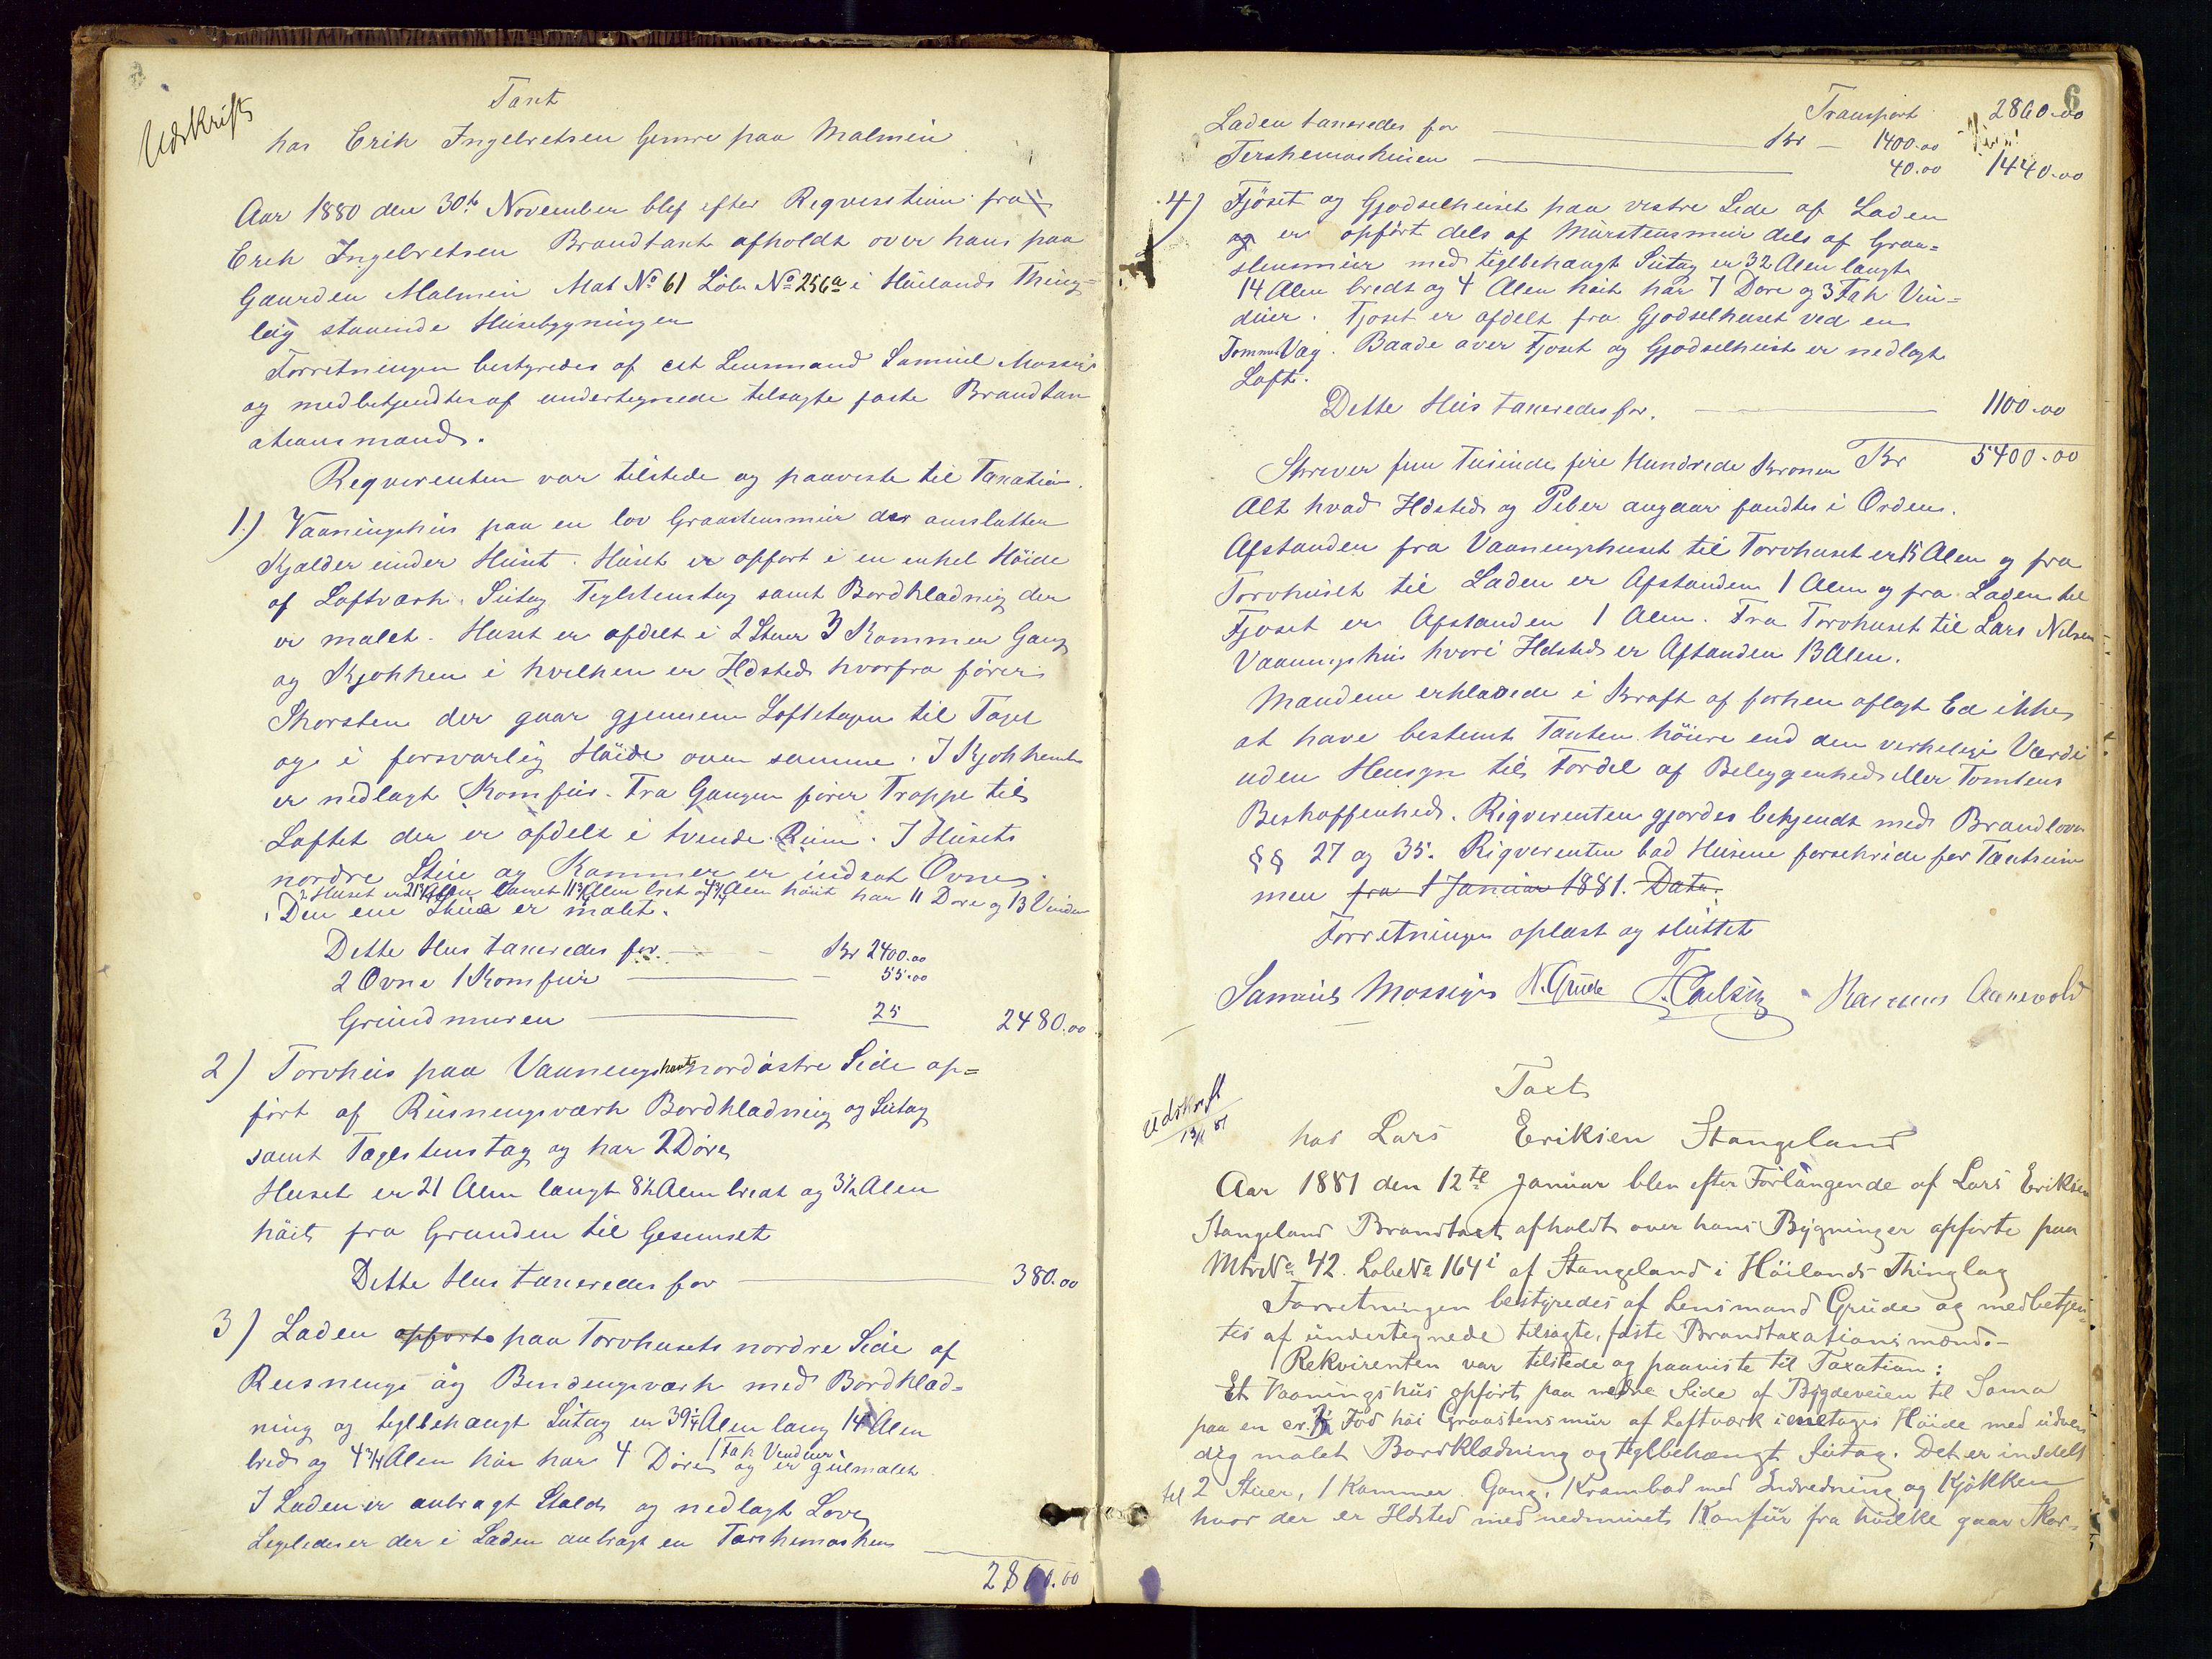 Udskrift
Taxt
hos Erik Ingebretsen Gimre paa Malmin
Aar 1880 den 30te November blef efter Reqvisition fra
Erik Ingebretsen Brandtaxt afholdt over hans paa
Gaarden Malmin Mat No 61 Løbe No 256a i Høilands Thing=
lag staaende Husebygninger
Forretningen bestyredes af cst Lensmand Samuel Mossige
og medbetjendtes af undertegnede tilsagte faste Brandtax
ationsmænd.
Reqvirenten var tilstede og paaviste til Taxation.
1.) Vaaningshus paa en lov Graastensmur der omslutter
Kjælder under Huset. Huset er opført i en enkel Høide
af Loftværk. Sutag Teglstenstag samt Bordklædnig der
er malet. Huset er afdelt i 2 Stuer 3 Kammer Gang
og Kjøkken i hvilken er Ildsted hvorfra fører
Skorsten der gaar gjennem Loftetagen til Taget
og i forsvarlig Høide over samme. I Kjøkkenet
er nedlagt Komfur. Fra Gangen fører Trappe til
Loftet der er afdelt i tvende Rum. I Husets
nordre Stue og Kammer er indsat Ovne.
Huset er 21 3/4 Alen langt 11 3/4 Alen bret og 4 3/4 Alen høit har 11 Døre og 13 Vinduer
Den ene Stue er malet.
Dette Hus taxeredes for — Kr 2400.00
2 Ovne 1 Komfur — 55.00
Grundmuren — 25 2480.00
2) Torvhus paa Vaaningshusets nordøstre Side op=
ført af Reisningsværk Bordklædnig og Sutag
samt Taglstenstag og har 2 Døre
Huset er 21 Alen langt 8 1/2 Alen bredt og 3 1/2 Alen
høit fra Grunden til Gesemset
Dette Hus taxeredes for — 380.00
3) Laden opførte paa Torvhusets nordre Side af
Reisnings og Bindingsværk med Bordklæd=
ning og teglbehængt Sutag er 39 1/4 Alen lang 14 Alen
bred og 4 3/4 Alen høi har 4 Døre 1 Fak Vinduer og er gulmalet
I Laden er anbragt Stald og nedlagt Love
Ligeledes er der i Laden anbragt en Tærskemaskin
2860.00
6
Transport 2860.00
Laden taxeredes for — Kr — 1400.00
Terskemaskinen — 40.00 1440.00
4) Fjøset og Gjødselhuset paa vestre Side af Laden
og er opført dels af Murstensmur dels af Graa=
stensmur med teglbehængt Sutag er 32 Alen langt
14 Alen bredt og 4 Alen høit har 7 Døre og 3 Fak Vin=
duer. Fjøset er afdelt fra Gjødselhuset ved en
Tømmer Væg. Baade over Fjøset og Gjødselhuset er nedlagt
Loft.
Dette Hus taxeredes for. — 1100.00
Skriver fem Tusinde fire Hundrede Kroner Kr 5400.00
Alt hvad Ildsted og Piber angaar fandtes i Orden.
Afstanden fra Vaaningshuset til Torvhuset er 15 Alen og fra
Torvhuset til Laden er Afstanden 1 Alen og fra Laden til
Fjøset er Afstanden 1 Alen. Fra Torvhuset til Lars Nilsens
Vaaningshus hvori Ildsted er Aftanden 13 Alen.
Mændene erklærede i Kraft af forhen aflagt Ed ikke
at have bestemt Taxten høiere end den verkelige Værdi
uden Hensyn til Fordel af Beliggenhed eller Tomtens
Beskaffenhed. Reqvirenten gjordes bekjendt med Brandloven
§§ 27 og 35. Reqvirenten bad Husene forsikride for Taxtsum
men fra 1 Januar 1881. Data.
Forretningen oplæst og sluttet
Samuel Mossige N. Grude T. Carlsen Rasmus Aanevold
Udskrift
13/1 81
Taxt
hos Lars Eriksen Stangeland
Aar 1881 den 12te Januar blev efter Forlangende af Lars Eriksen
Stangeland Brandtaxt afholdt over hans Bygninger opførte paa
Mtr No 42. Løbe No 164i af Stangeland i Höilands Thinglag
Forretningen bestyredes af Lensmand Grude og medbetjen=
tes af undertegnede tilsagte, faste Brandtaxationsmænd.-
Rekvirenten var tilstede og paaviste til Taxation:
Et Vaaningshus opført paa nedre Side af Bygdeveien til Soma
paa en cr. Fod høi Graastensmur af Loftværk i en etages Høide med udven
dig malet Bordklædning og teglbehængt Sutag. Det er inddelt
til 2 Stuer, 1 Kammer. Gang. Krambod med Indredning og Kjøkken
hvor der er Ildsted med nedmuret Komfur fra hvilke gaar Skor=